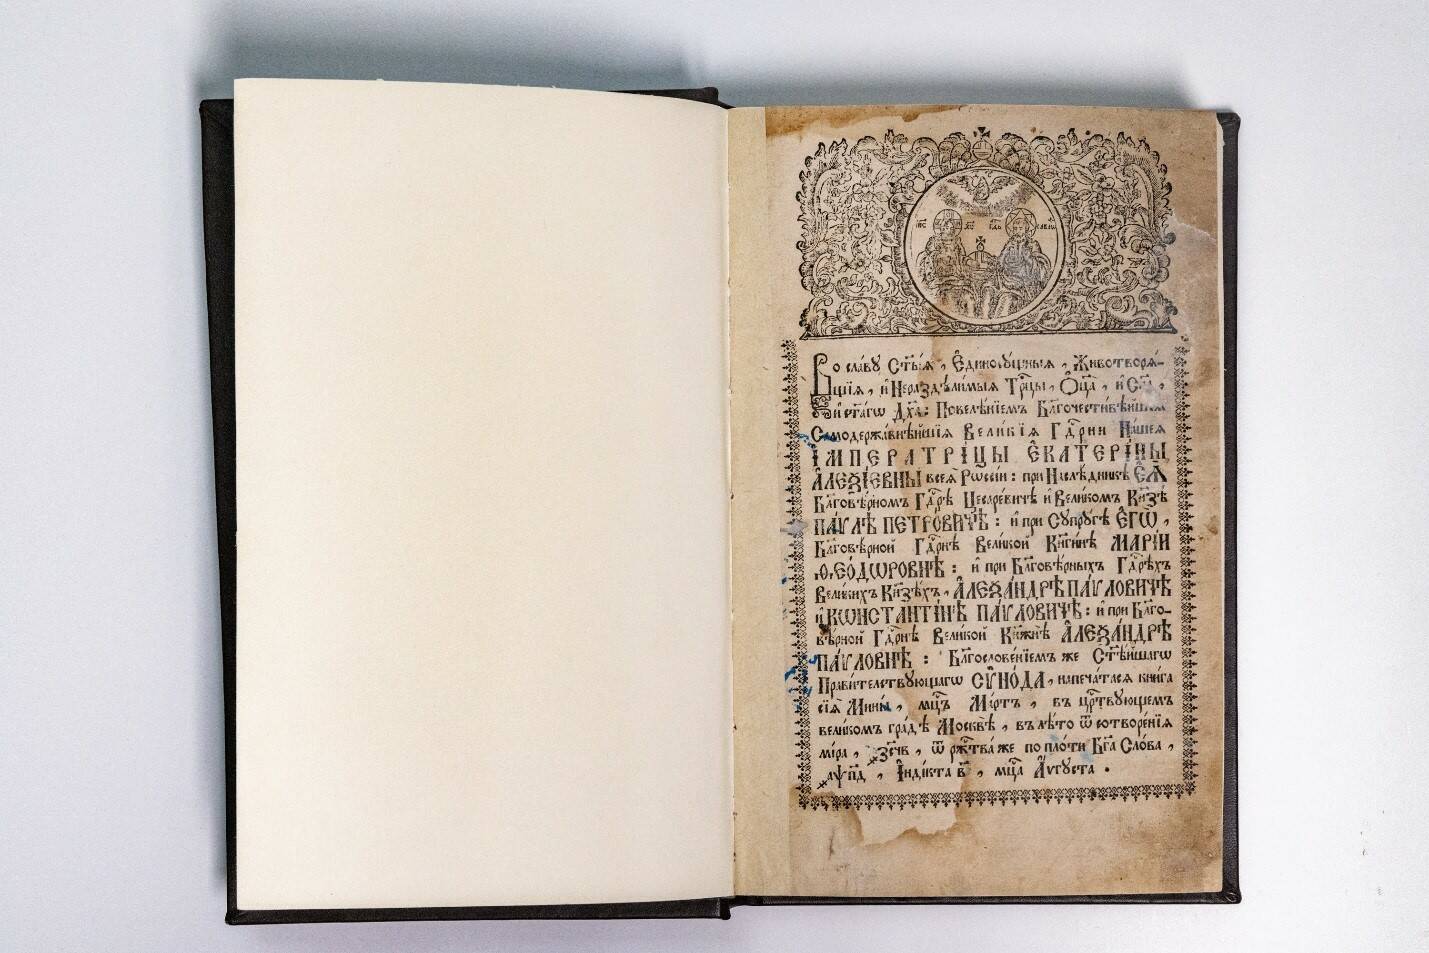 ІИ҃С ХС҃
Во сла́ву Ст҃ы́ѧ , Є҆диносу́щныѧ , Животворѧ́-
щїѧ , и҆ Нераздѣ́лимыѧ Трⷪ҇цы , Ѻ҆ц҃а̀ , и҆ Сн҃а ,
и҆ ст҃а́гѡ Дх҃а : Повелѣ́нїемъ Бл҃гочести́вѣйшїѧ
Самодержа́внѣйшїѧ Вели́кїѧ Гдⷭ҇рни На́шеѧ
І҆МПЕРАТРІ́ЦЫ Є҆КАТЕРІ́НЫ
А҆ЛЕѮІ́ЕВНЫ всеѧ̀ Рѡссі́и : при Наслѣ́дникѣ Є҆Ѧ̀
Бл҃говѣ́рномъ Гдⷭ҇рѣ̀ Цесаре́вичѣ и҆ Вели́комъ Кн҃зѣ
ПА́ѴЛѢ ПЕТРО́ВИЧѢ : и҆ при Супру́гѣ Є҆ГѠ̀ ,
Бл҃говѣ́рной Гдⷭ҇рнѣ Вели́кой Кн҃ги́нѣ МАРІ́И
ѲЕѺ́ДѠРОВНѢ : и҆ при Бл҃говѣ́рныхъ Гдⷭ҇рѣхъ
Вели́кихъ Кн҃зѣ́хъ , А҆ЛЕѮА́НДРѢ ПА́ѴЛОВИЧѢ
и҆ КѠНСТАНТІ́НѢ ПА́ѴЛОВИЧѢ : и҆ при Бл҃го-
вѣ́рной Гдⷭ҇рнѣ Вели́кой Кн҃жнѣ̀ А҆ЛЕѮА́НДРѢ
ПА́ѴЛОВНѢ : Бл҃гослове́нїемъ же Ст҃ѣ́йшагѡ
Прави́телствующагѡ СѴНО́ДА , напеча́тасѧ кни́га
сїѧ̀ Мине́ѧ , мцⷭ҇ъ Ма́ртъ , въ црⷭ҇твующемъ
вели́комъ гра́дѣ Москвѣ̀ , въ лѣ́то ѿ сотворе́нїѧ
мі́ра , ҂зсч҃в , ѿ ржⷭ҇тва́ же по пло́ти Бг҃а Сло́ва ,
҂аѱп҃д , І҆ндї́кта в҃ , мцⷭ҇а А҆́ѵгуста .